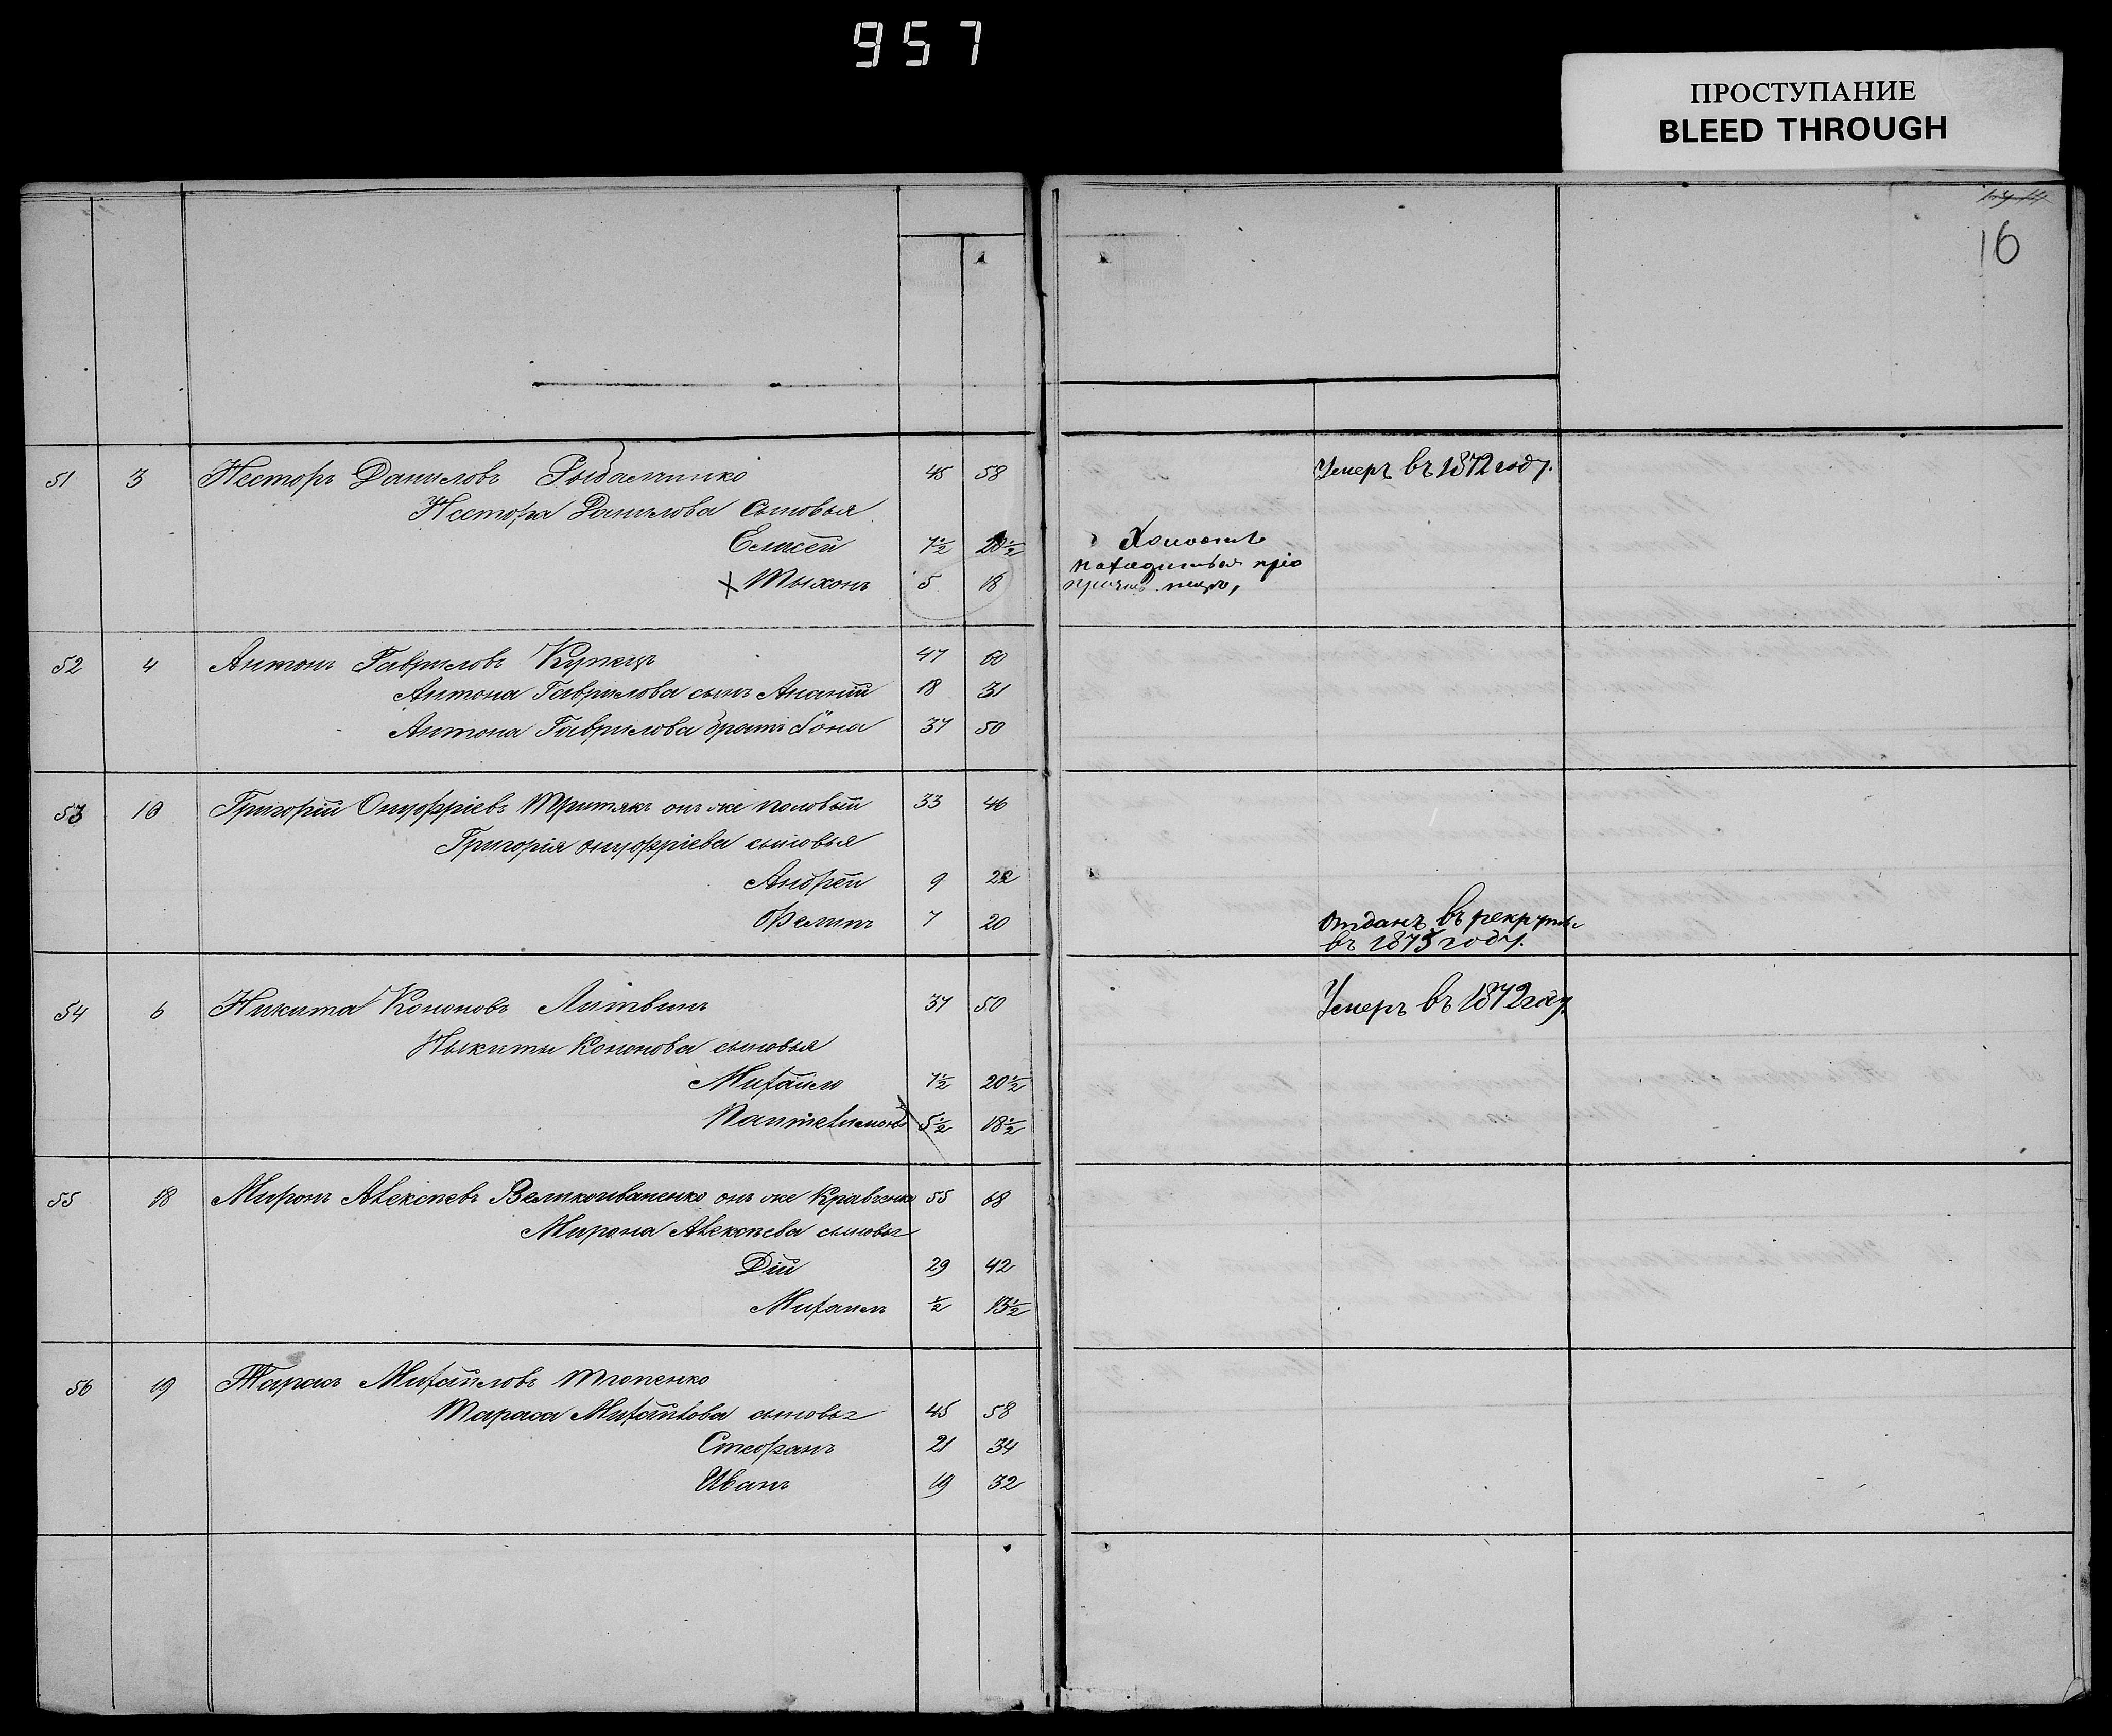 957
ПРОСТУПАНИЕ
BLEED THROUGH
16
51 3 Несторъ Даниловъ Рыбальченко 45 58 Умеръ въ 1872 году.
Нестора Данилова сыновья
Елисей 7½ 20½ Холостъ
находиться при
Тихонъ 5 18
52 4 Антонъ Гавриловъ Купецъ 47 60
Антона Гаврилова сынъ Ананій 18 31
Антона Гаврилова братъ Іона 37 50
53 10 Григорій Онуфріевъ Третякъ онъ же Половый 33 46
Григорія Онуфріева сыновья
Андрей 9 22
Филипъ 7 20 отданъ въ рекруты
въ 1875 году.
54 6 Никита Кононовъ Литвинъ 37 50 Умеръ въ 1872 году.
Никиты Кононова сыновья
Михаило 7½ 20½
Пантелимонъ 5½ 18½
55 18 Миронъ Алексѣевъ Великоиваненко онъ же Кравченко 55 68
Мирона Алексѣева сыновья
Дій 29 42
Михаилъ ½ 13½
56 19 Тарасъ Михайловъ Топенко
Тараса Михайлова сыновья 45 58
Стефанъ 21 34
Иванъ 19 32